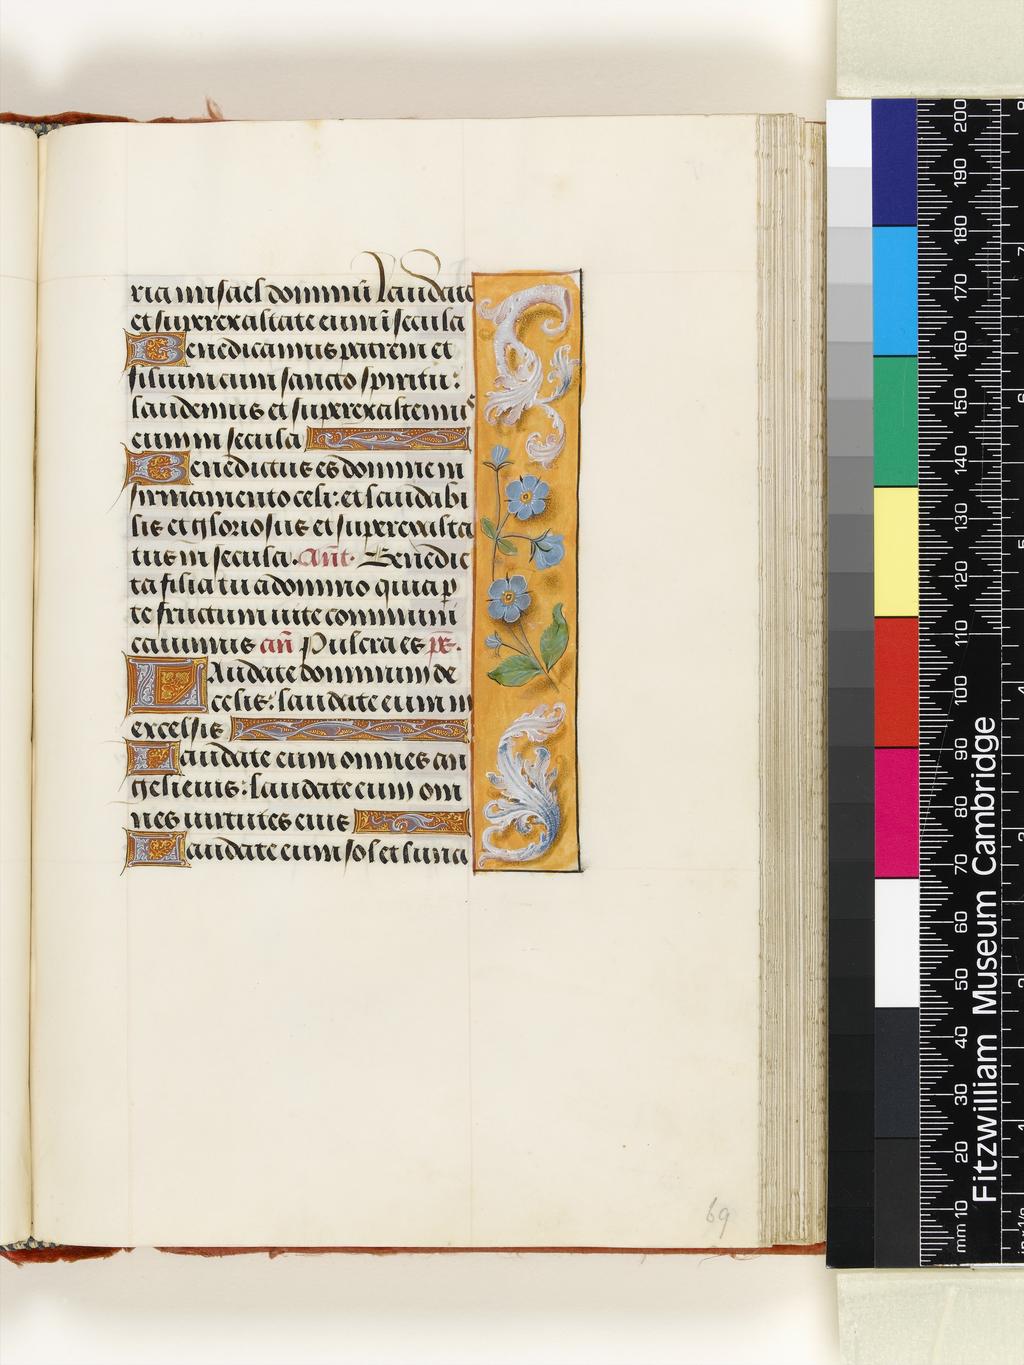 ria misael domino laudate
et superexaltate eum ĩ secula
Benedicamus patrem et
filium cum sancto spiritu:
laudemus et superexaltemus
eum in secula
Benedictus es domine in
firmamento celi: et laudabi
lis et gloriosus et superexalta
tus in secula. Añt. Benedic
ta filia tu a domino quia ꝑ
te fructum vite communi
cavimus añ Pulcra es ps̃.
Laudate dominum de
celis: laudate eum in
excelsis
Laudate eum omnes an
geli eius: laudate eum om
nes virtutes eius
Laudate eum sol et luna
69
Fitzwilliam Museum Cambridge
mm 10 20 30 40 50 60 70 80 90 100 110 120 130 140 150 160 170 180 190 200